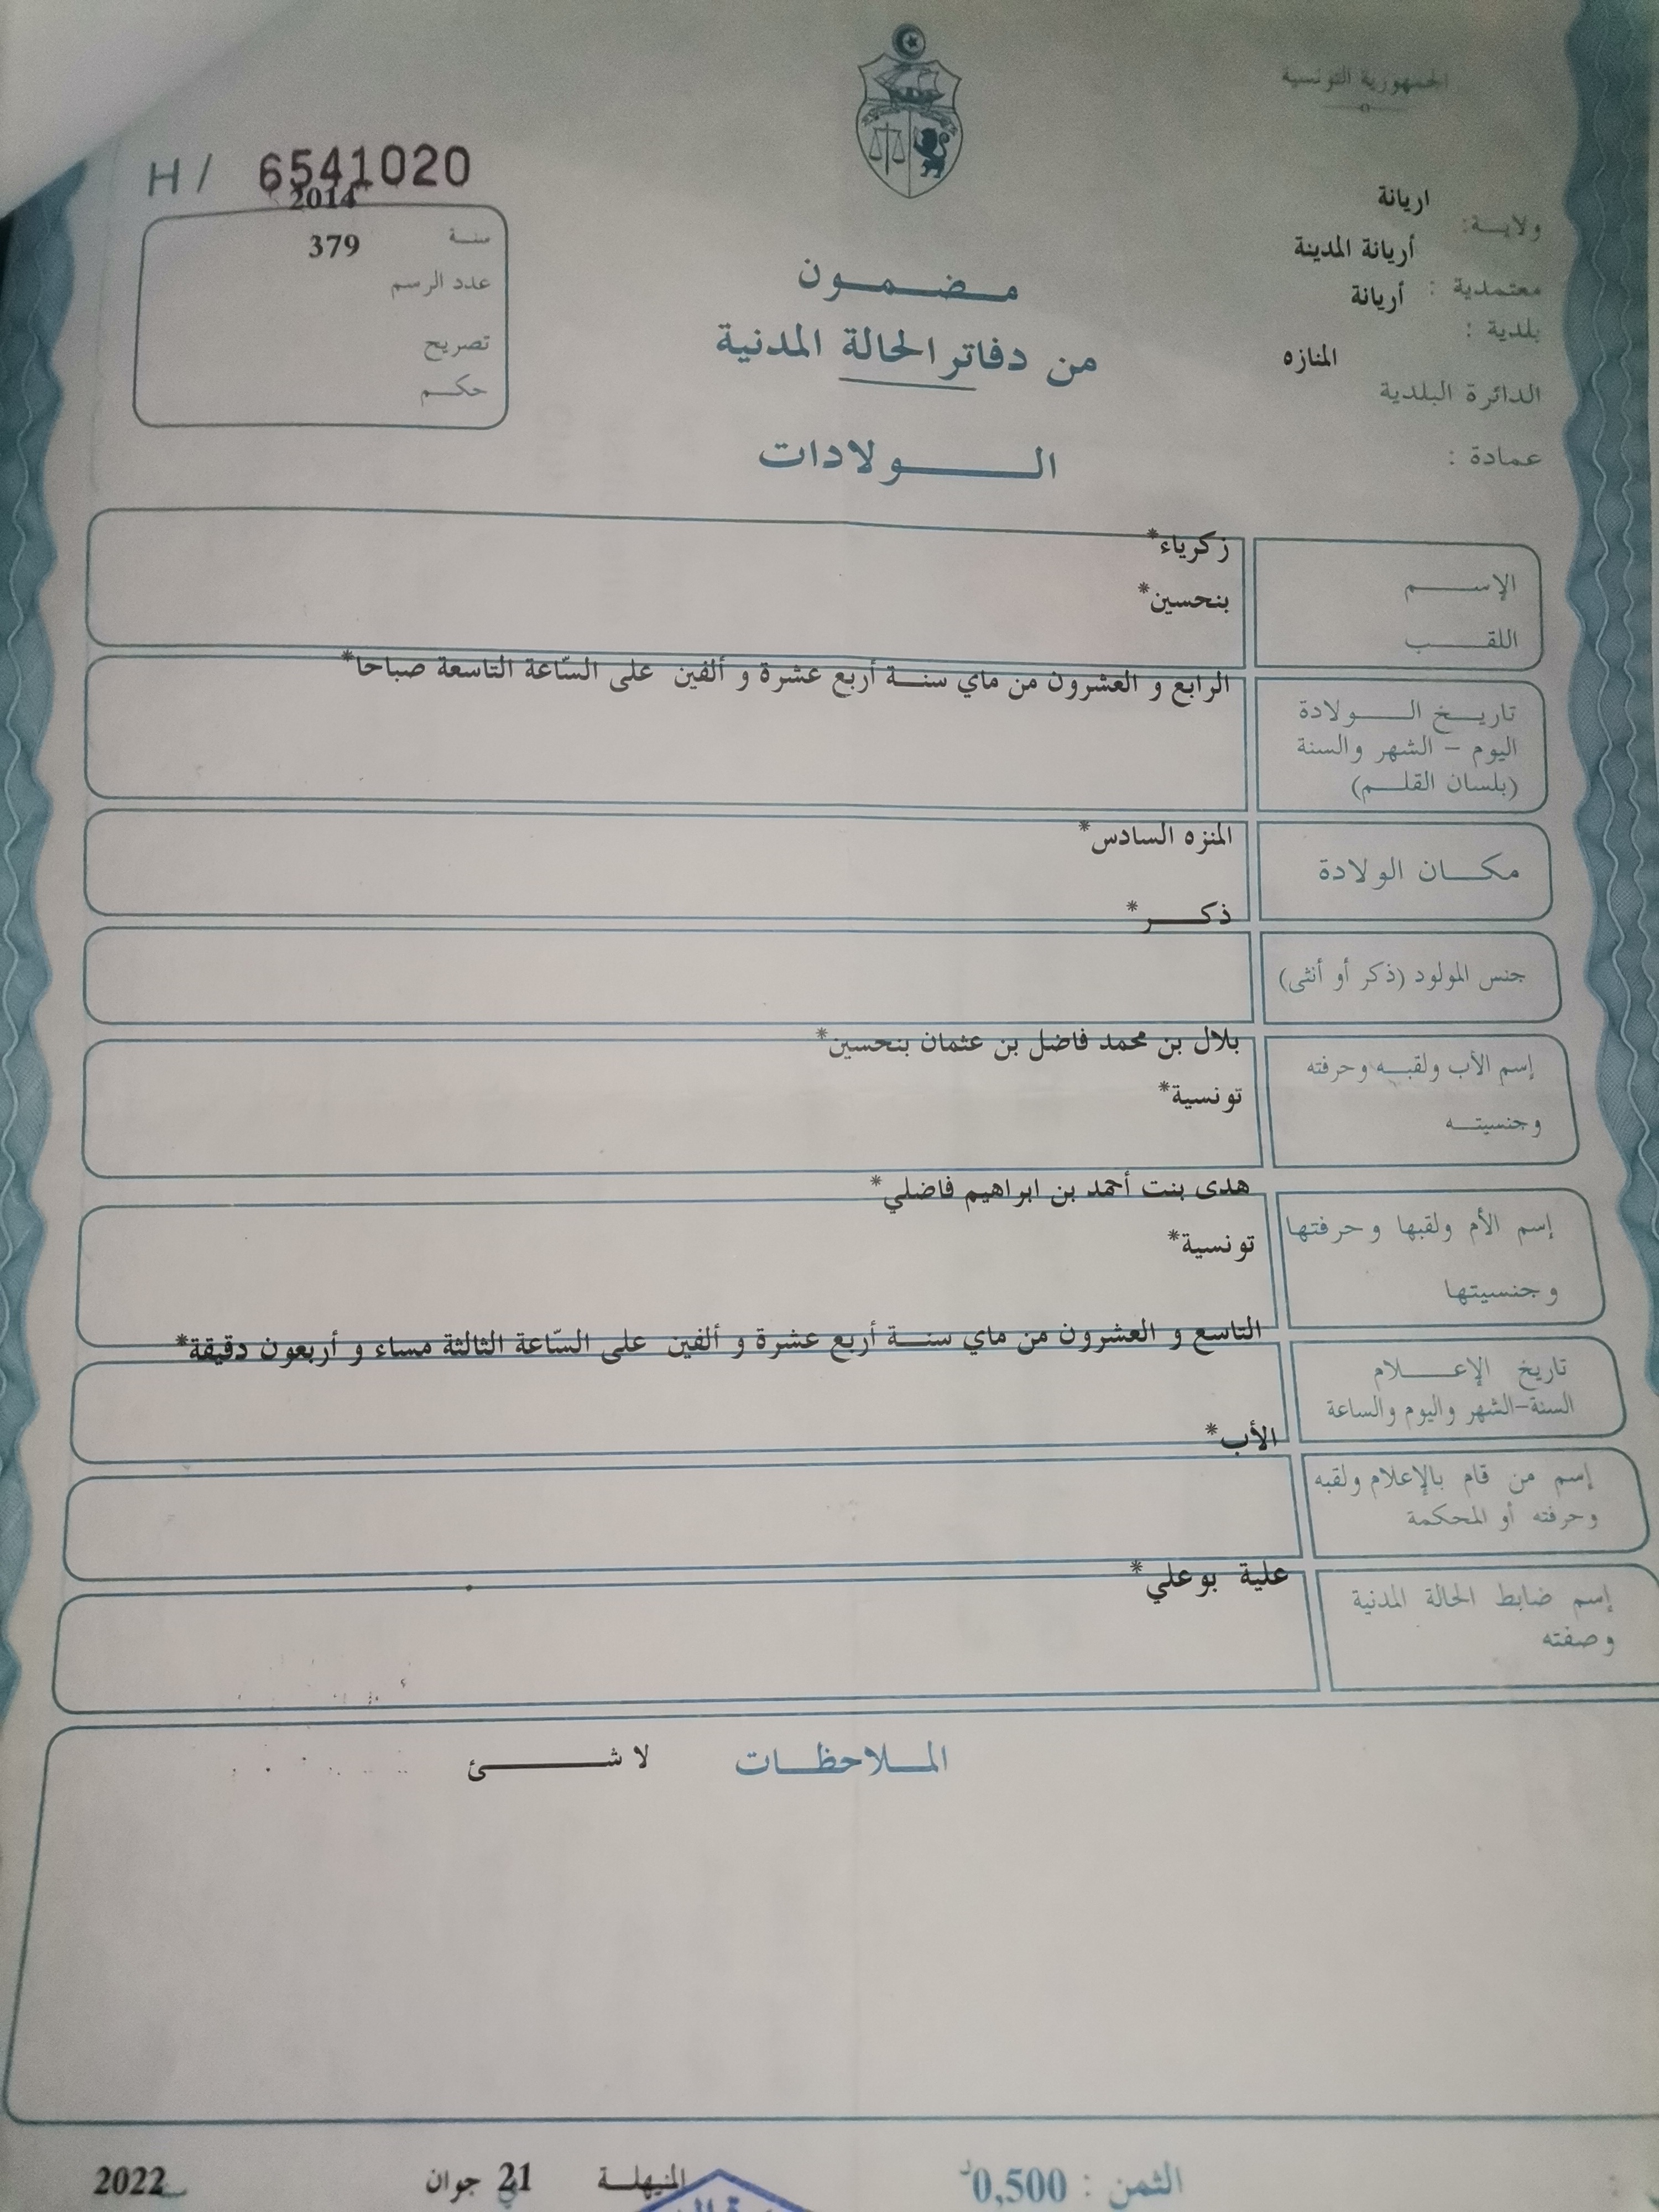 الجمهورية التونسية
H / 6541020
ولايـــة: اريانة
معتمدية : أريانة المدينة
بلدية : أريانة
الدائرة البلدية المنازه
عمادة :
سنـــة 2014
عدد الرسم 379
تصريح
حكـــم
مـــضـــمـــون
من دفاتر الحالة المدنية
الـــــولادات
الإســـــم زكرياء*
اللقـــــب بنحسين*
تاريـــخ الـــــولادة الرابع و العشرون من ماي سنـــة أربع عشرة و ألفين على السّاعة التاسعة صباحا*
اليوم – الشهر والسنة
(بلسان القلـــم)
مكـــان الولادة المنزه السادس*
جنس المولود (ذكر أو أنثى) ذكـــر*
إسم الأب ولقبـــه وحرفته بلال بن محمد فاضل بن عثمان بنحسين*
وجنسيتـــه تونسية*
إسم الأم ولقبها وحرفتها هدى بنت أحمد بن ابراهيم فاضلي*
وجنسيتها تونسية*
تاريخ الإعـــــلام التاسع و العشرون من ماي سنـــة أربع عشرة و ألفين على السّاعة الثالثة مساء و أربعون دقيقة*
السنة-الشهر واليوم والساعة
إسم من قام بالإعلام ولقبه الأب*
وحرفته أو المحكمة
إسم ضابط الحالة المدنية علية بوعلي*
وصفته
المـــلاحظـــات لا شـــــئ
الثمن : 0,500د المنيهلـــة في 21 جوان 2022